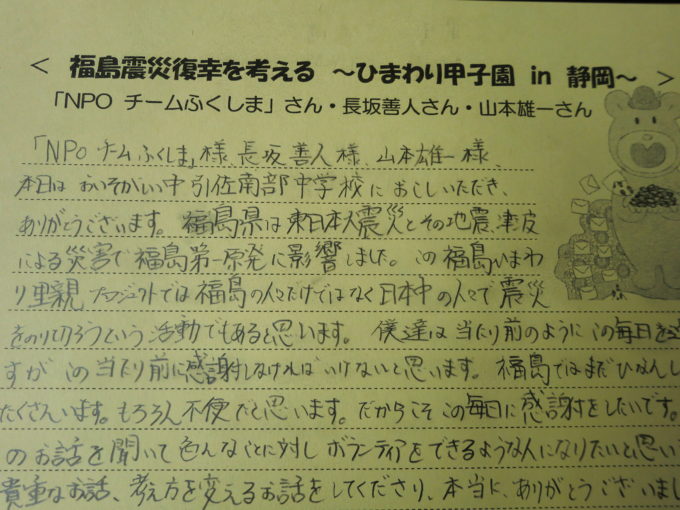 ＜ 福島震災復幸を考える ～ひまわり甲子園 in 静岡～ ＞
「NPO チームふくしま」さん・長坂善人さん・山本雄一さん
「NPO チームふくしま」様、長坂善人様、山本雄一様、
本日は おいそがしい中 引佐南部中学校に おこしいただき、
ありがとうございます。福島県は東日本大震災とその地震、津波
による災害で福島第一原発に影響しました。この福島ひまわ
り里親プロジェクトでは福島の人々だけではなく日本中の人々で震災
をのり切ろうという活動でもあると思います。僕達は当たり前のように この毎日を
すが この当たり前に感謝しなければいけないと思います。福島ではまだひなんし
たくさんいます。もちろん不便だと思います。だからこそこの毎日に感謝をしたいです。
のお話を聞いて色んなことに対しボランティアをできるような人になりたいと思い
貴重なお話、考え方を変えるお話をしてくださり、本当に、ありがとうございまし